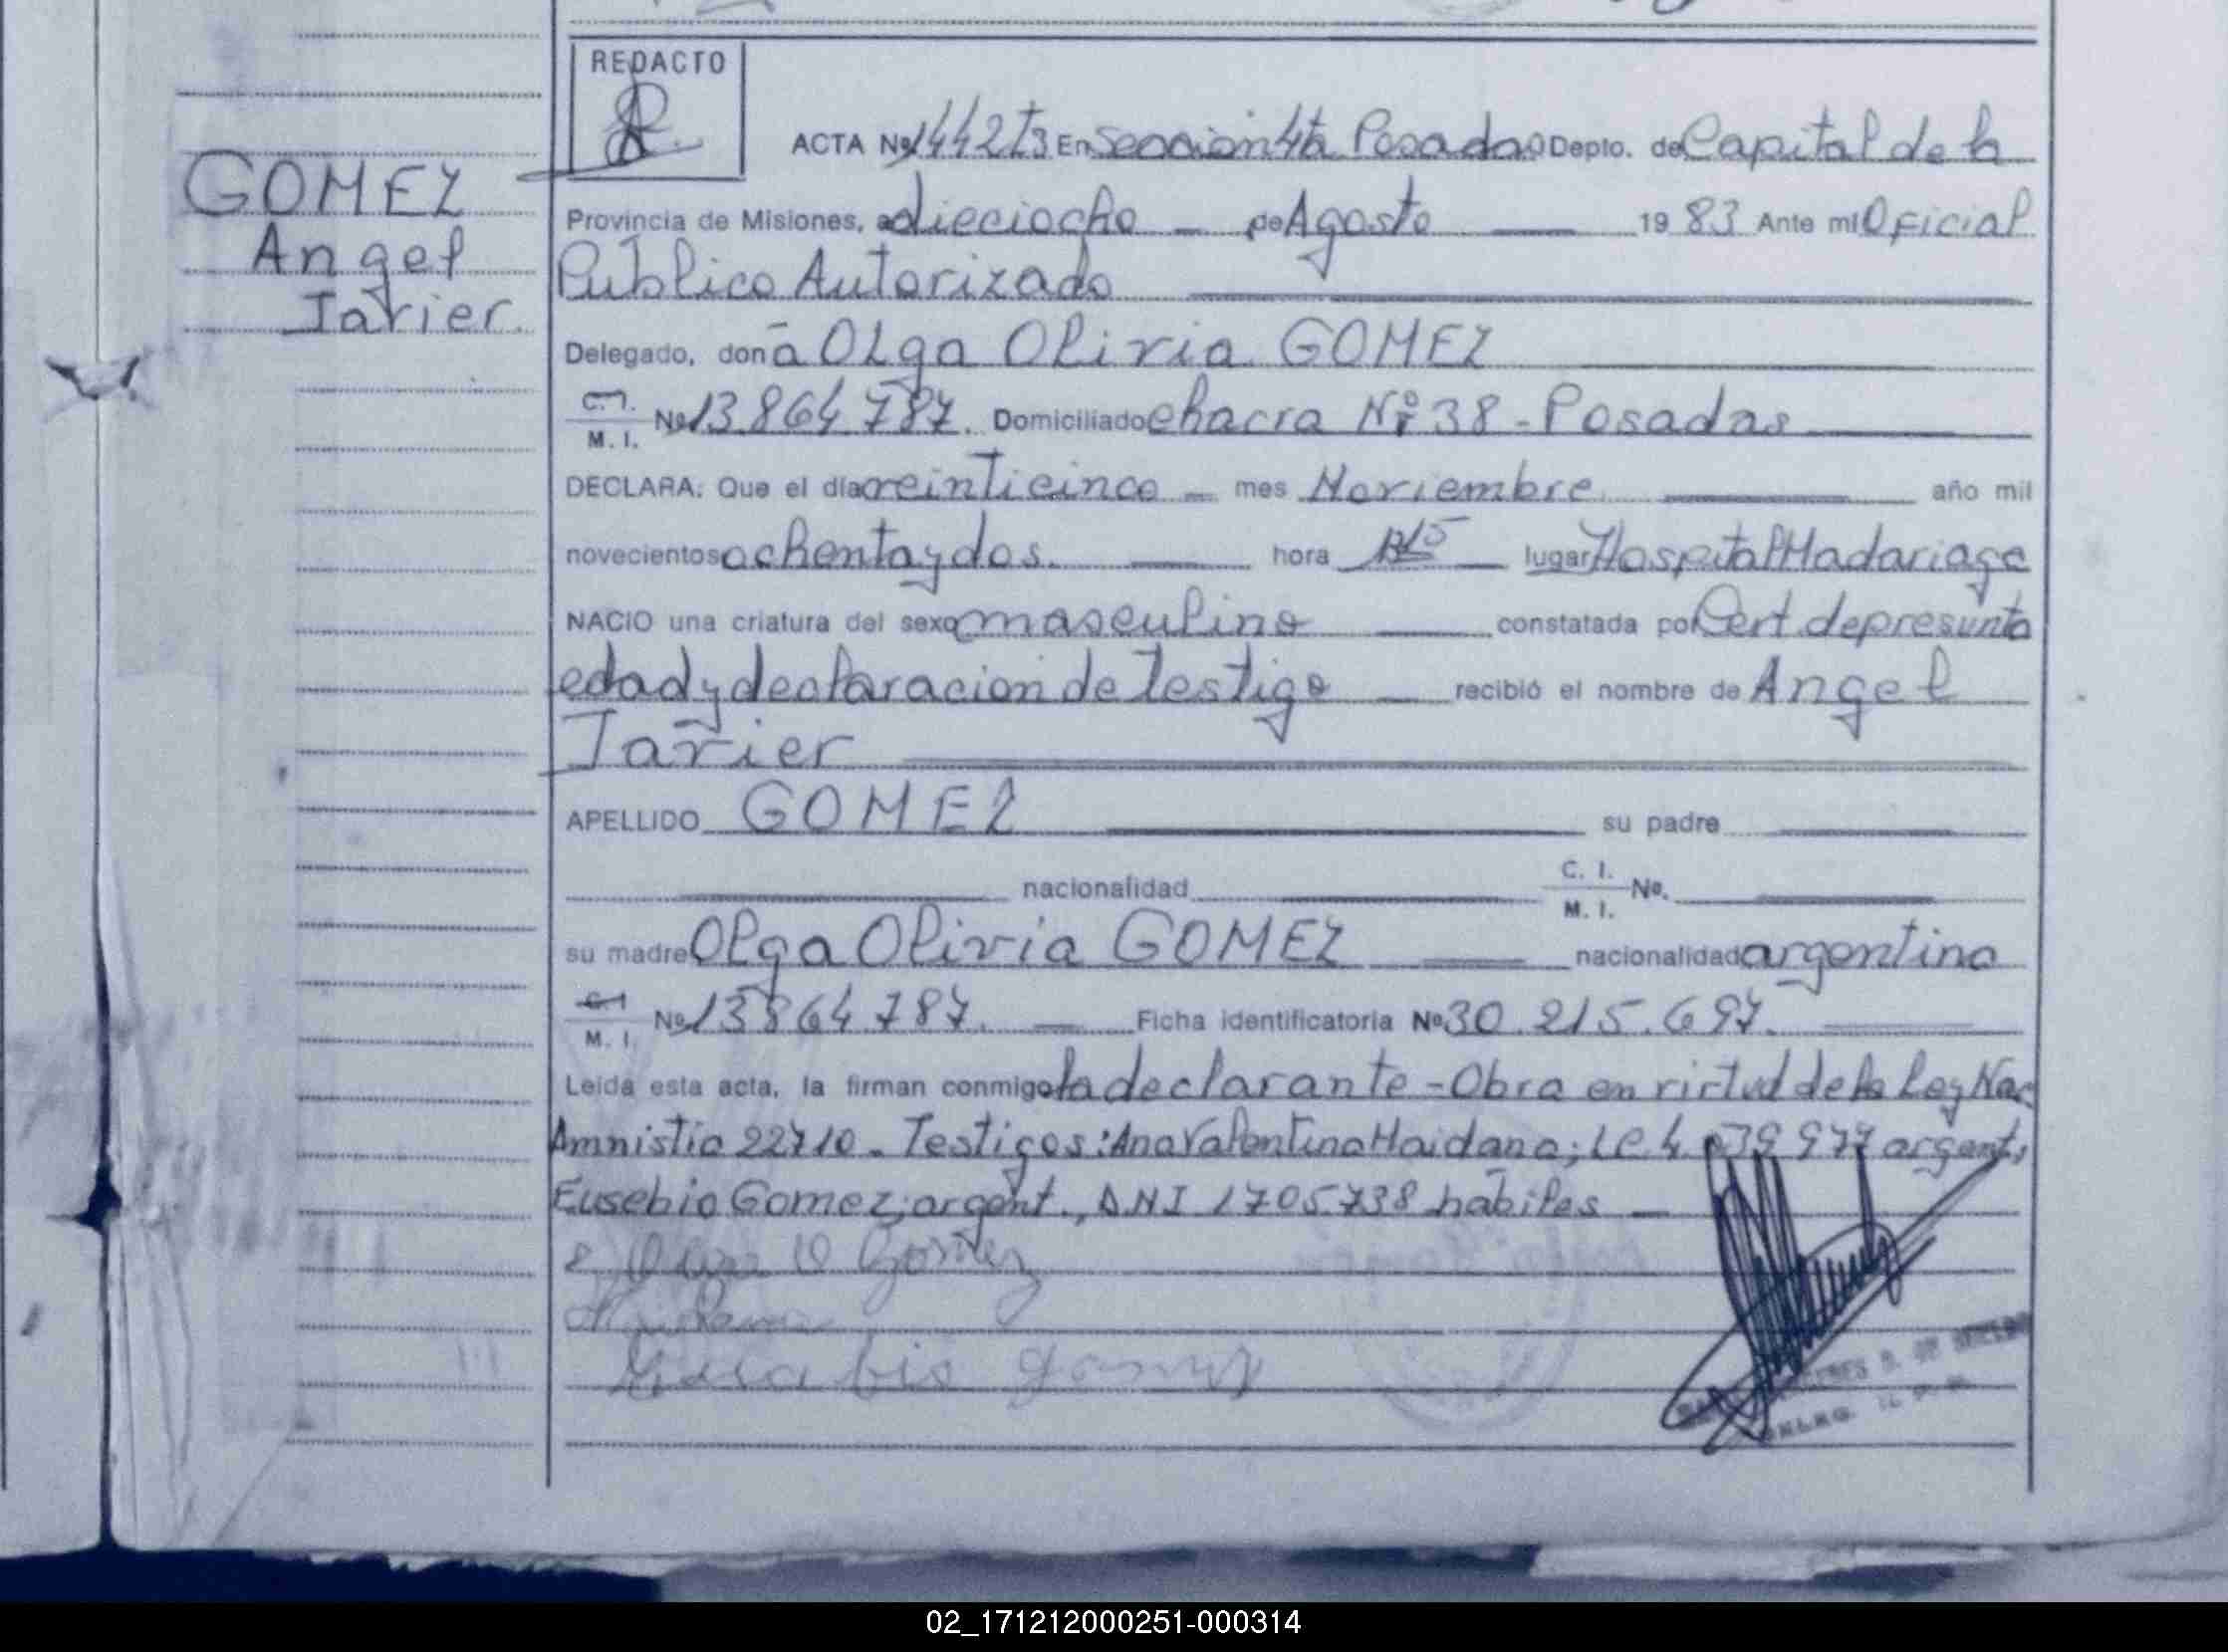 REDACTO
ACTA Nº 1442 T3 En Sección 4ta Posadas Depto. de Capital de la
GOMEZ
Provincia de Misiones, a dieciocho de Agosto 19 83 Ante mi Oficial
Angel
Público Autorizado
Javier.
Delegado, doña Olga Olivia GOMEZ
C.I. M. I. Nº 13.864.787. Domiciliado chacra Nº 38 - Posadas
DECLARA: Que el día veinticinco mes Noviembre año mil
novecientos ochenta y dos. hora lugar Hospital Madariaga
NACIO una criatura del sexo masculino constatada por Cert. de presunta
edad y declaración de testigo recibió el nombre de Angel
Javier
APELLIDO GOMEZ su padre
nacionalidad C. I. M. I. Nº.
su madre Olga Olivia GOMEZ nacionalidad argentina
C.I. M. I. Nº 13864787. Ficha identificatoria Nº 30.215.697.
Leída esta acta, la firman conmigo la declarante - Obra en virtud de la Ley Nac
Amnistia 22710. Testigos: Ana Valentina Maidana; LC 4.039977 argent,
Eusebio Gomez, argent., DNI 1705738 habiles
Olga O Gomez
Maidana
Eusebio Gomez
02_171212000251-000314